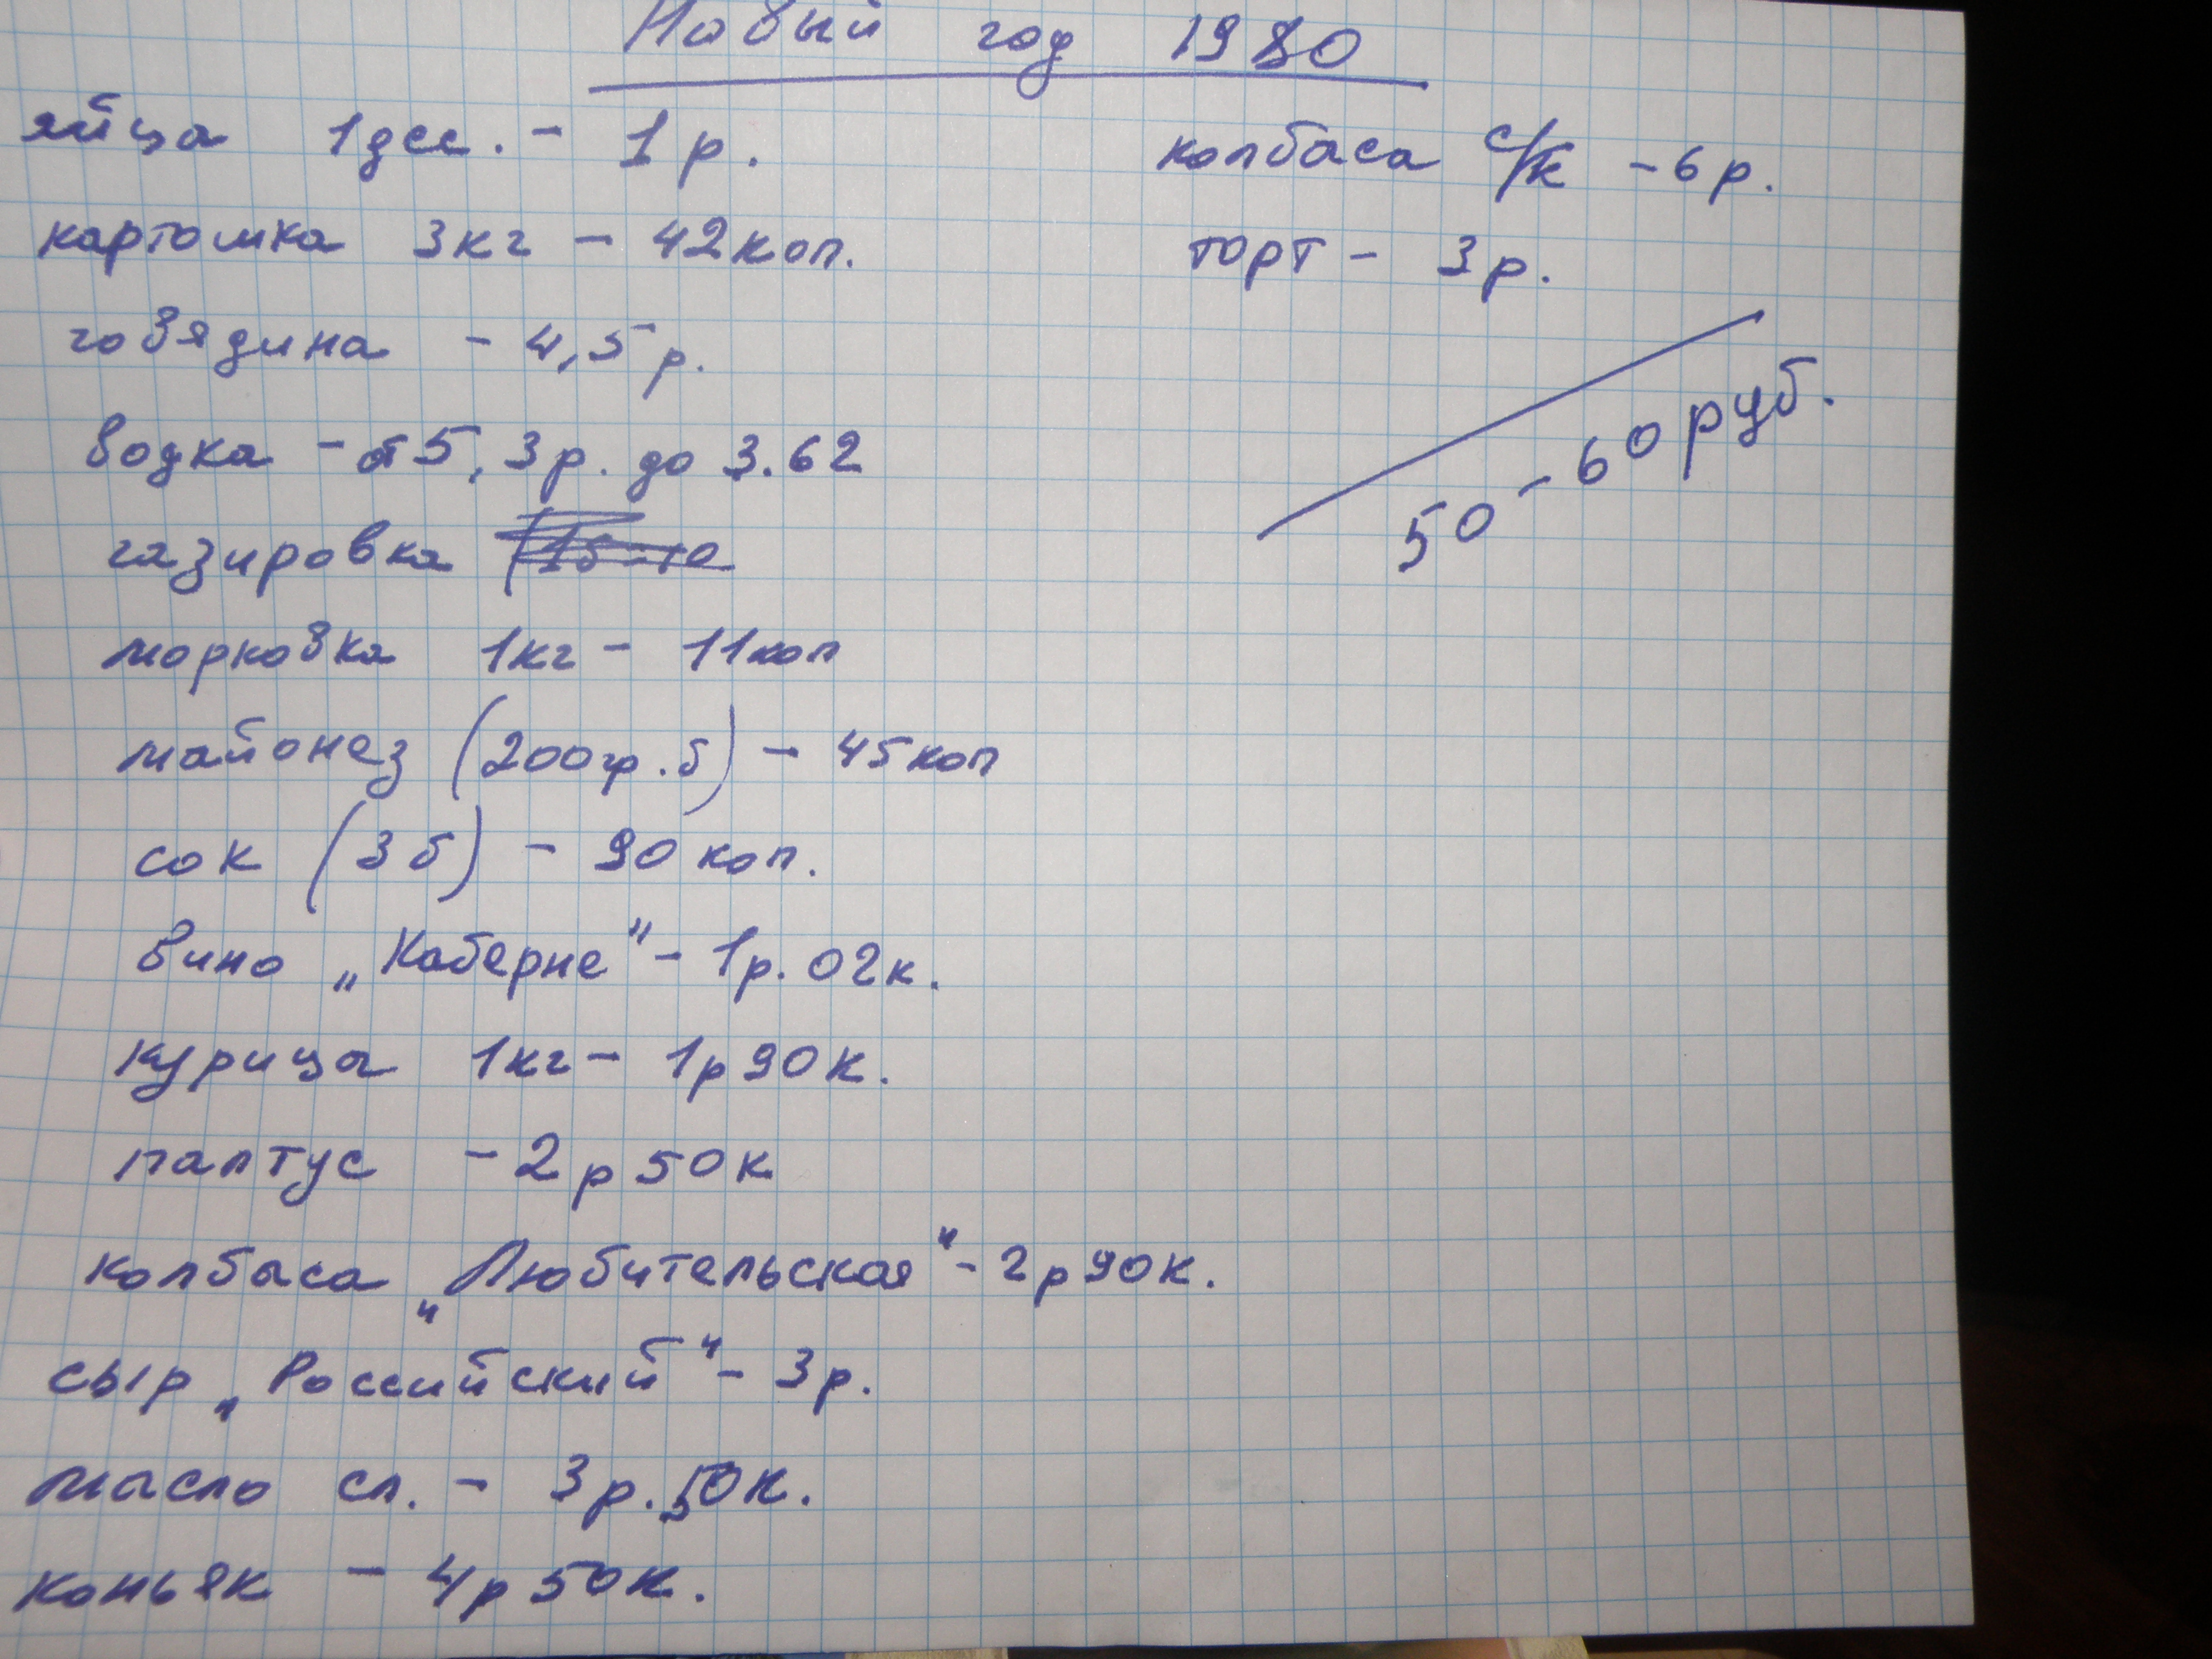 Новый год 1980
яйца 1дес. - 1р.
картошка 3кг - 42коп.
говядина - 4,5р.
водка - от 5,3р. до 3.62
газировка
морковка 1кг - 11коп
майонез (200гр.б) - 45коп
сок (3б) - 90коп.
вино „Каберне" - 1р.02к.
курица 1кг - 1р90к.
палтус - 2р50к
колбаса „Любительская" - 2р90к.
сыр „Российский" - 3р.
масло сл. - 3р.50к.
коньяк - 4р50к.
колбаса с/к - 6р.
торт - 3р.
50-60руб.